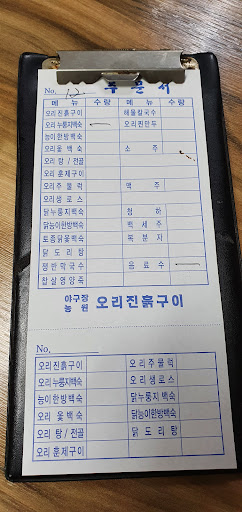 No. 12 주문서
메뉴 수량 메뉴 수량
오리진흙구이 해물칼국수
오리누룽지백숙 오리찐만두
능이한방백숙
오리옻백숙 소주
오리탕/전골
오리훈제구이
오리주물럭 맥주
오리생로스
닭누룽지백숙 청하
닭능이한방백숙 백세주
토종닭옻백숙 복분자
닭도리탕
쟁반막국수 음료수
찹쌀영양죽
야구장
농원 오리진흙구이
No.
오리진흙구이 오리주물럭
오리누룽지백숙 오리생로스
능이한방백숙 닭누룽지백숙
오리옻백숙 닭능이한방백숙
오리탕/전골 닭도리탕
오리훈제구이